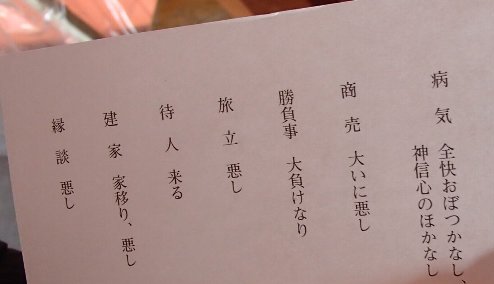 病気 全快おぼつかなし、
神信心のほかなし
商売 大いに悪し
勝負事 大負けなり
旅立 悪し
待人 来る
建家 家移り、悪し
縁談 悪し